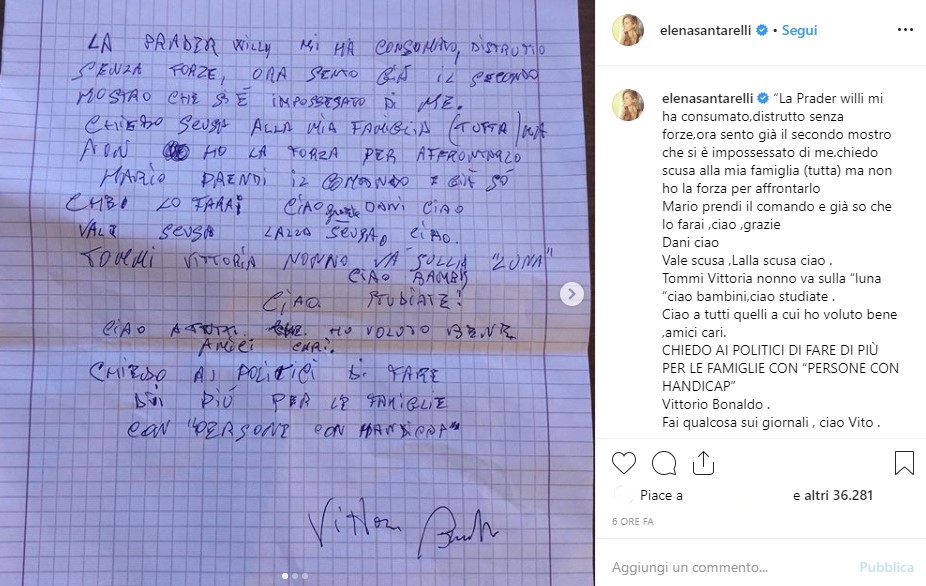 LA PRADER WILLY MI HA CONSUMATO, DISTRUTTO
SENZA FORZE, ORA SENTO GIÀ IL SECONDO
MOSTRO CHE SI È IMPOSSESSATO DI ME.
CHIEDO SCUSA ALLA MIA FAMIGLIA (TUTTA) MA
NON HO LA FORZA PER AFFRONTARLO
MARIO PRENDI IL COMANDO E GIÀ SO
CHE LO FARAI CIAO grazie DANI CIAO
VALE SCUSA LALLA SCUSA, CIAO.
TOMMI VITTORIA NONNO VA SULLA "LUNA"
CIAO BAMBINI
CIAO STUDIATE!
CIAO A TUTTI. HO VOLUTO BENE
AMICI CARI.
CHIEDO AI POLITICI DI FARE
DI PIÙ PER LE FAMIGLIE
CON "PERSONE CON HANDICAP"
Vittorio
elenasantarelli • Segui
elenasantarelli “La Prader willi mi
ha consumato,distrutto senza
forze,ora sento già il secondo mostro
che si è impossessato di me.chiedo
scusa alla mia famiglia (tutta) ma non
ho la forza per affrontarlo
Mario prendi il comando e già so che
lo farai ,ciao ,grazie
Dani ciao
Vale scusa ,Lalla scusa ciao .
Tommi Vittoria nonno va sulla “luna
“ciao bambini,ciao studiate .
Ciao a tutti quelli a cui ho voluto bene
,amici cari.
CHIEDO AI POLITICI DI FARE DI PIÙ
PER LE FAMIGLIE CON “PERSONE CON
HANDICAP”
Vittorio Bonaldo .
Fai qualcosa sui giornali , ciao Vito .
Piace a e altri 36.281
6 ORE FA
Aggiungi un commento... Pubblica